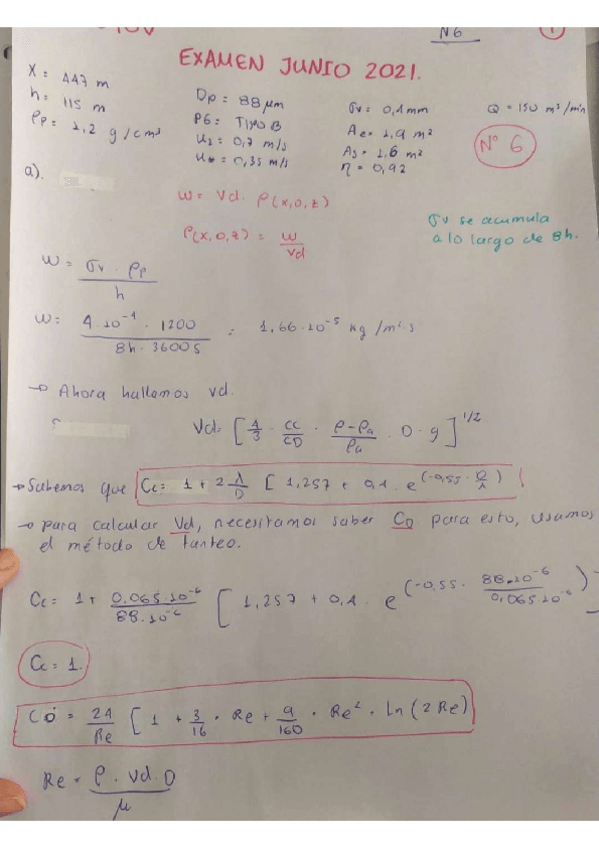 N6
1
EXAMEN JUNIO 2021.
X = 447 m
h = 115 m
ρp = 1,2 g/cm³
Dp = 88 μm
PG = TIPO B
u1 = 0,7 m/s
u* = 0,35 m/s
σv = 0,1 mm
Ae = 1,9 m²
As = 1,6 m²
η = 0,92
Q = 150 m³/min
Nº 6
a).
w = Vd. ρ(x,0,z)
ρ(x,0,z) = w/vd
σv se acumula
a lo largo de 8h.
w = σv · ρp / h
w = 1·10⁻⁴ · 1200 / 8h · 3600 s = 1,66·10⁻⁵ kg/m²·s
→ Ahora hallamos vd.
Vd = [4/3 · CC/CD · ρ-ρa/ρa · D · g]^1/2
→ Sabemos que Cc = 1 + 2 λ/D [1,257 + 0,1 · e^(-0,55 · D/λ)]
→ Para calcular Vd, necesitamos saber CD para esto, usamos
el método de tanteo.
Cc = 1 + 0,065·10⁻⁶ / 88·10⁻⁶ [1,257 + 0,1 · e^(-0,55 · 88·10⁻⁶ / 0,065·10⁻⁶)]
Cc = 1.
CD = 24/Re [1 + 3/16 · Re + 9/160 · Re² · Ln(2Re)
Re = ρ · Vd · D / μ